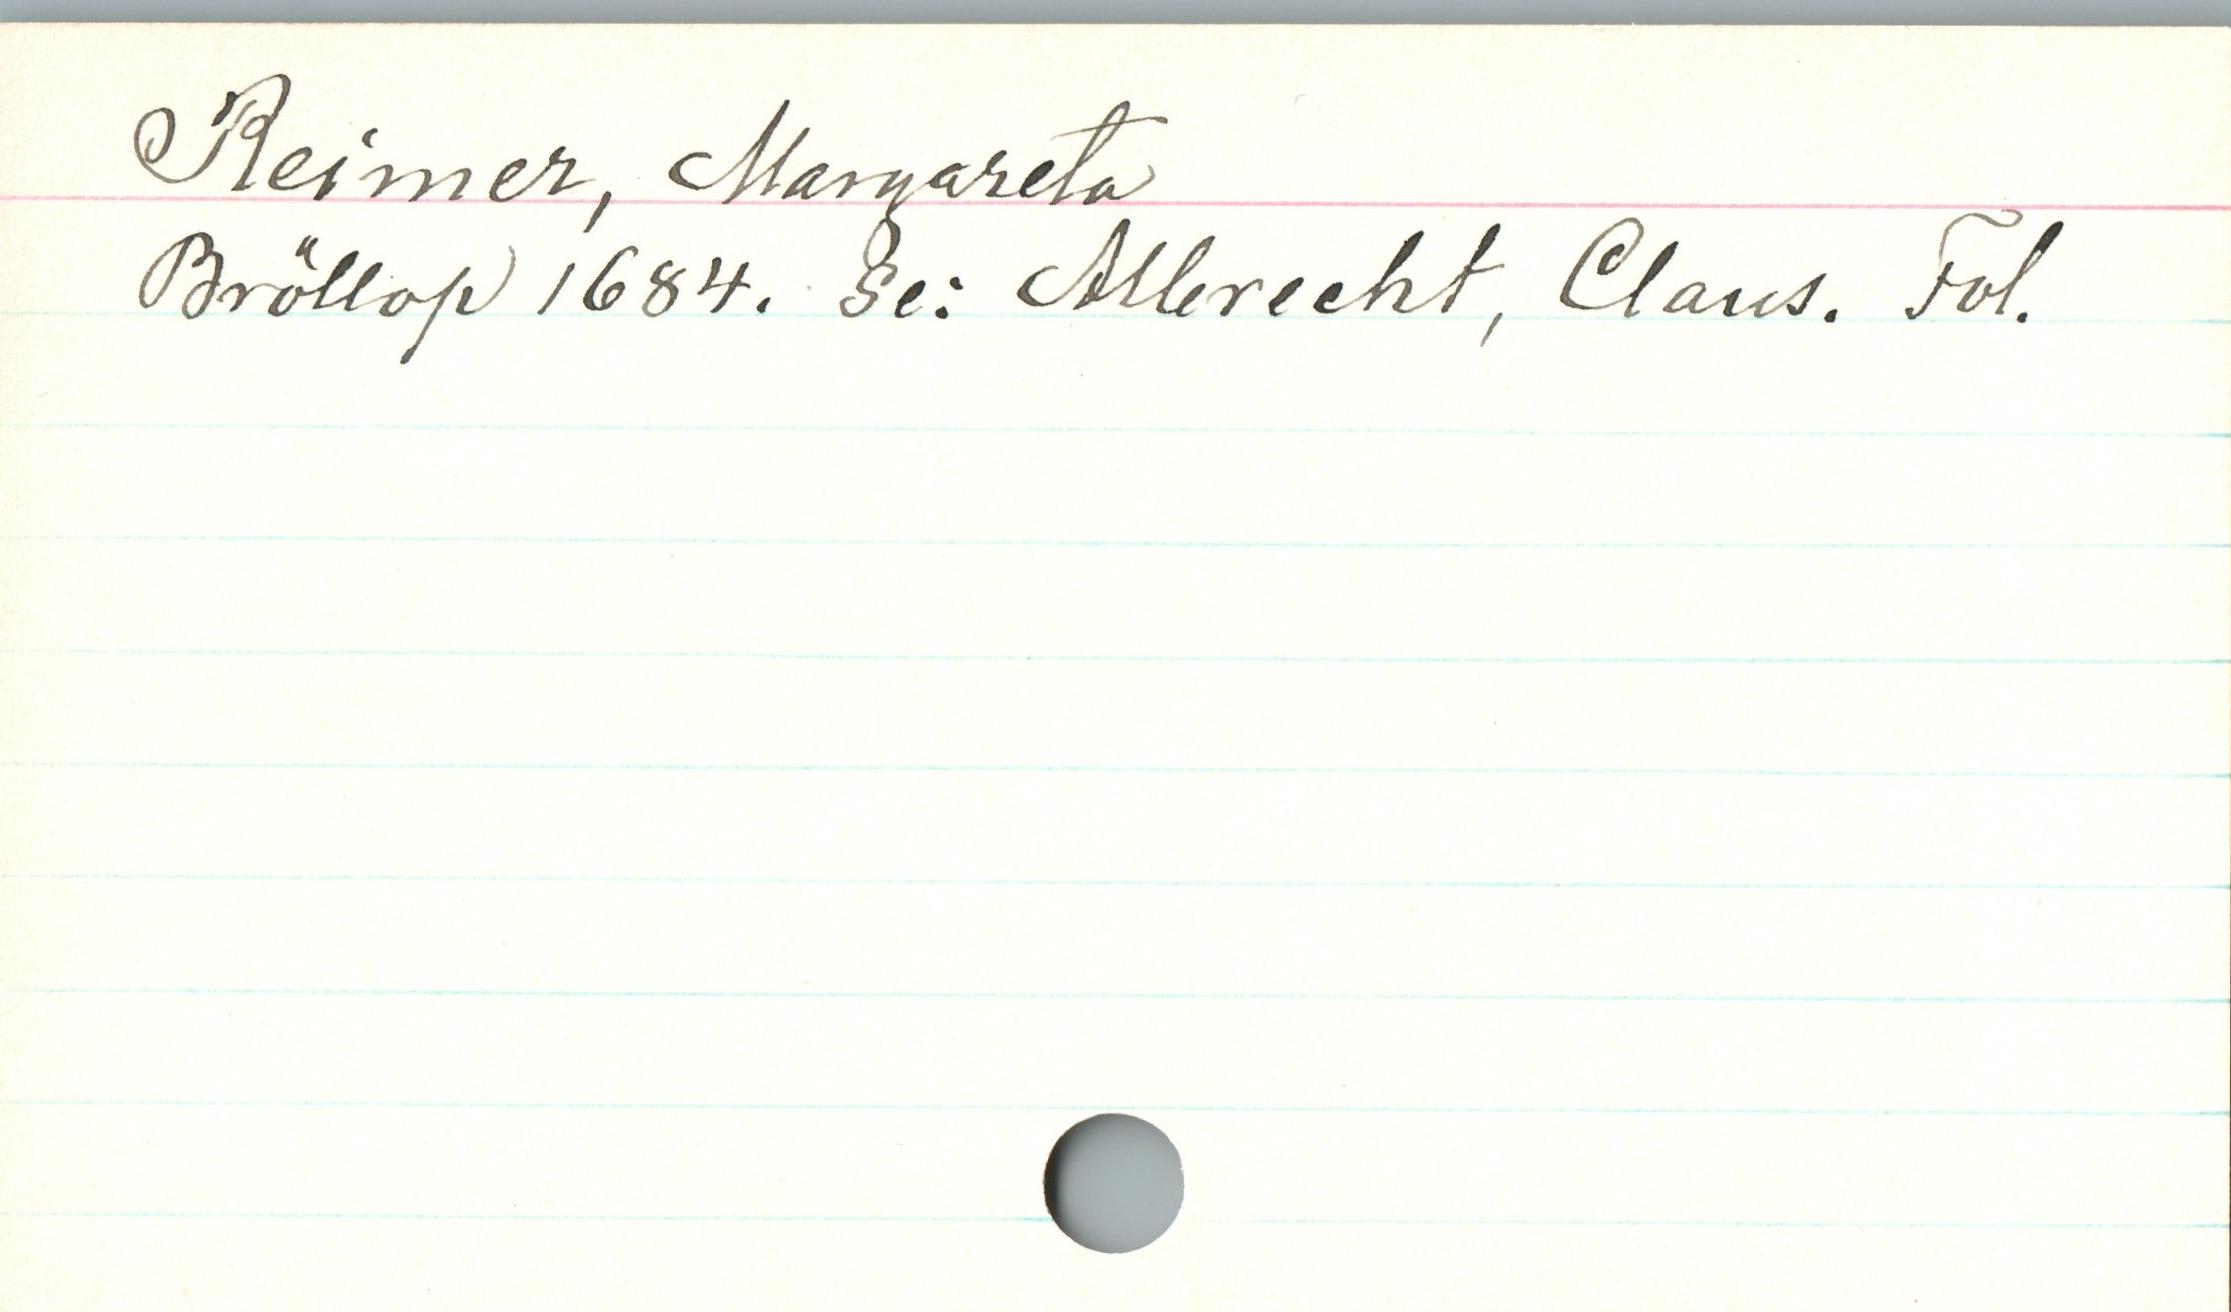 Reimer, Margareta
Bröllop 1684. Se: Albrecht, Claus. Fol.